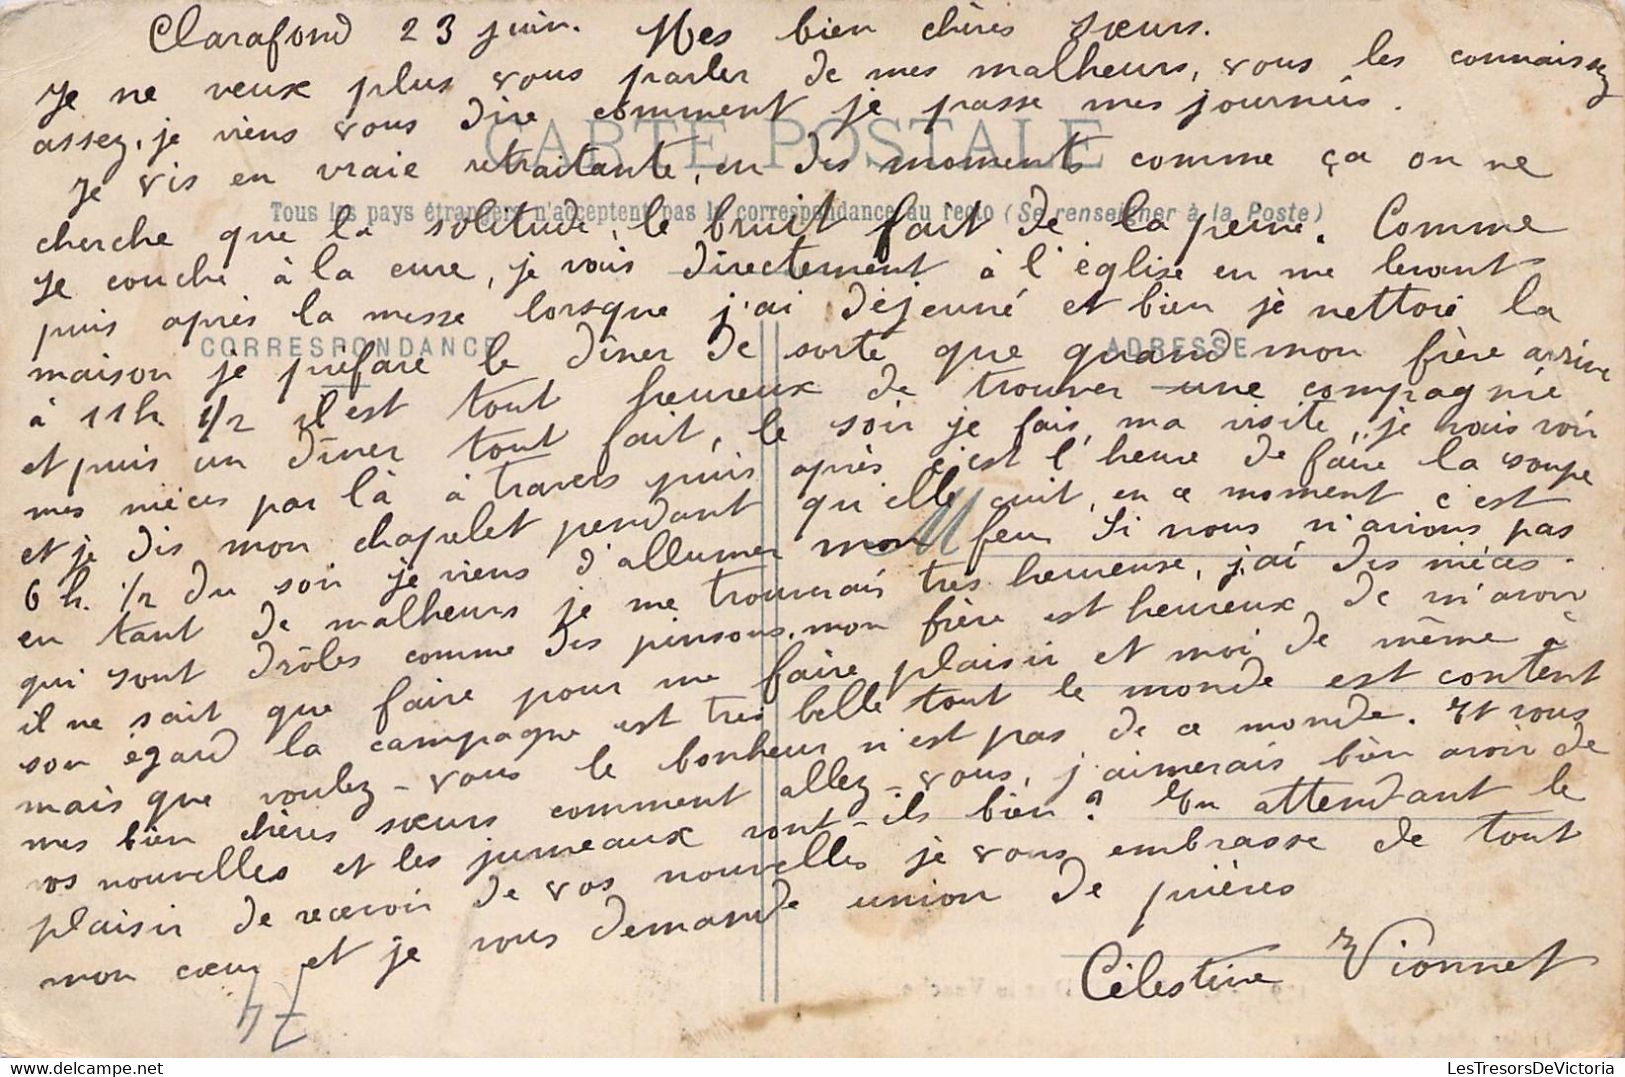 Clarafond 23 juin. Mes bien chères sœurs.
Je ne veux plus vous parler de mes malheurs, vous les connaissez
assez, je viens vous dire comment je passe mes journées.
CARTE POSTALE
Je vis en vraie retraitante, en des moments comme ça on ne
Tous les pays étrangers n'acceptent pas la correspondance au recto (Se renseigner à la Poste)
cherche que la solitude, le bruit fait de la peine. Comme
je couche à la cure, je vais directement à l'église en me levant
puis après la messe lorsque j'ai déjeuné et bien je nettoie la
CORRESPONDANCE ADRESSE
maison je prépare le dîner de sorte que quand mon frère arrive
à 11h 1/2 il est tout heureux de trouver une compagnie
et puis un dîner tout fait, le soir je fais ma visite, je vais voir
mes nièces par là à travers puis après c'est l'heure de faire la soupe
et je dis mon chapelet pendant qu'elle cuit, en ce moment c'est
6 h. 1/2 du soir je viens d'allumer mon feu. Si nous n'avions pas
en tant de malheurs je me trouverais très heureuse, j'ai des nièces.
qui sont drôles comme des pinsons, mon frère est heureux de m'avoir
il ne sait que faire pour me faire plaisir et moi de même à
son égard la campagne est très belle tout le monde est content
mais que voulez-vous le bonheur n'est pas de ce monde. Et vous
mes bien chères sœurs comment allez-vous, j'aimerais bien avoir de
vos nouvelles et les jumeaux vont-ils bien? En attendant le
plaisir de recevoir de vos nouvelles je vous embrasse de tout
mon cœur et je vous demande union de prières
Célestine Vionnet
74
LesTresorsDeVictoria